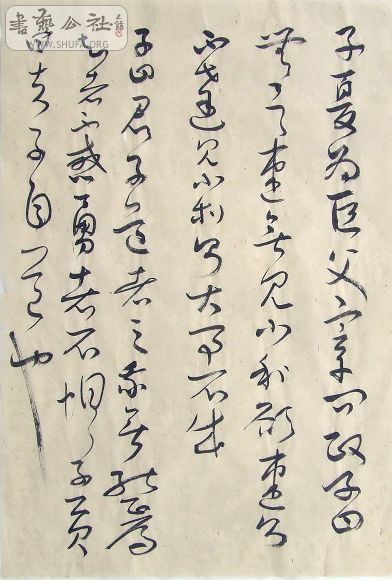 書藝公社
WWW.SHUFA.ORG
子夏為父宰问政子曰
無欲速無见小利欲速则
不達见小利则大事不成
子曰君子道者三我無能焉
者不惑勇者不惧子贡
曰夫子自道也